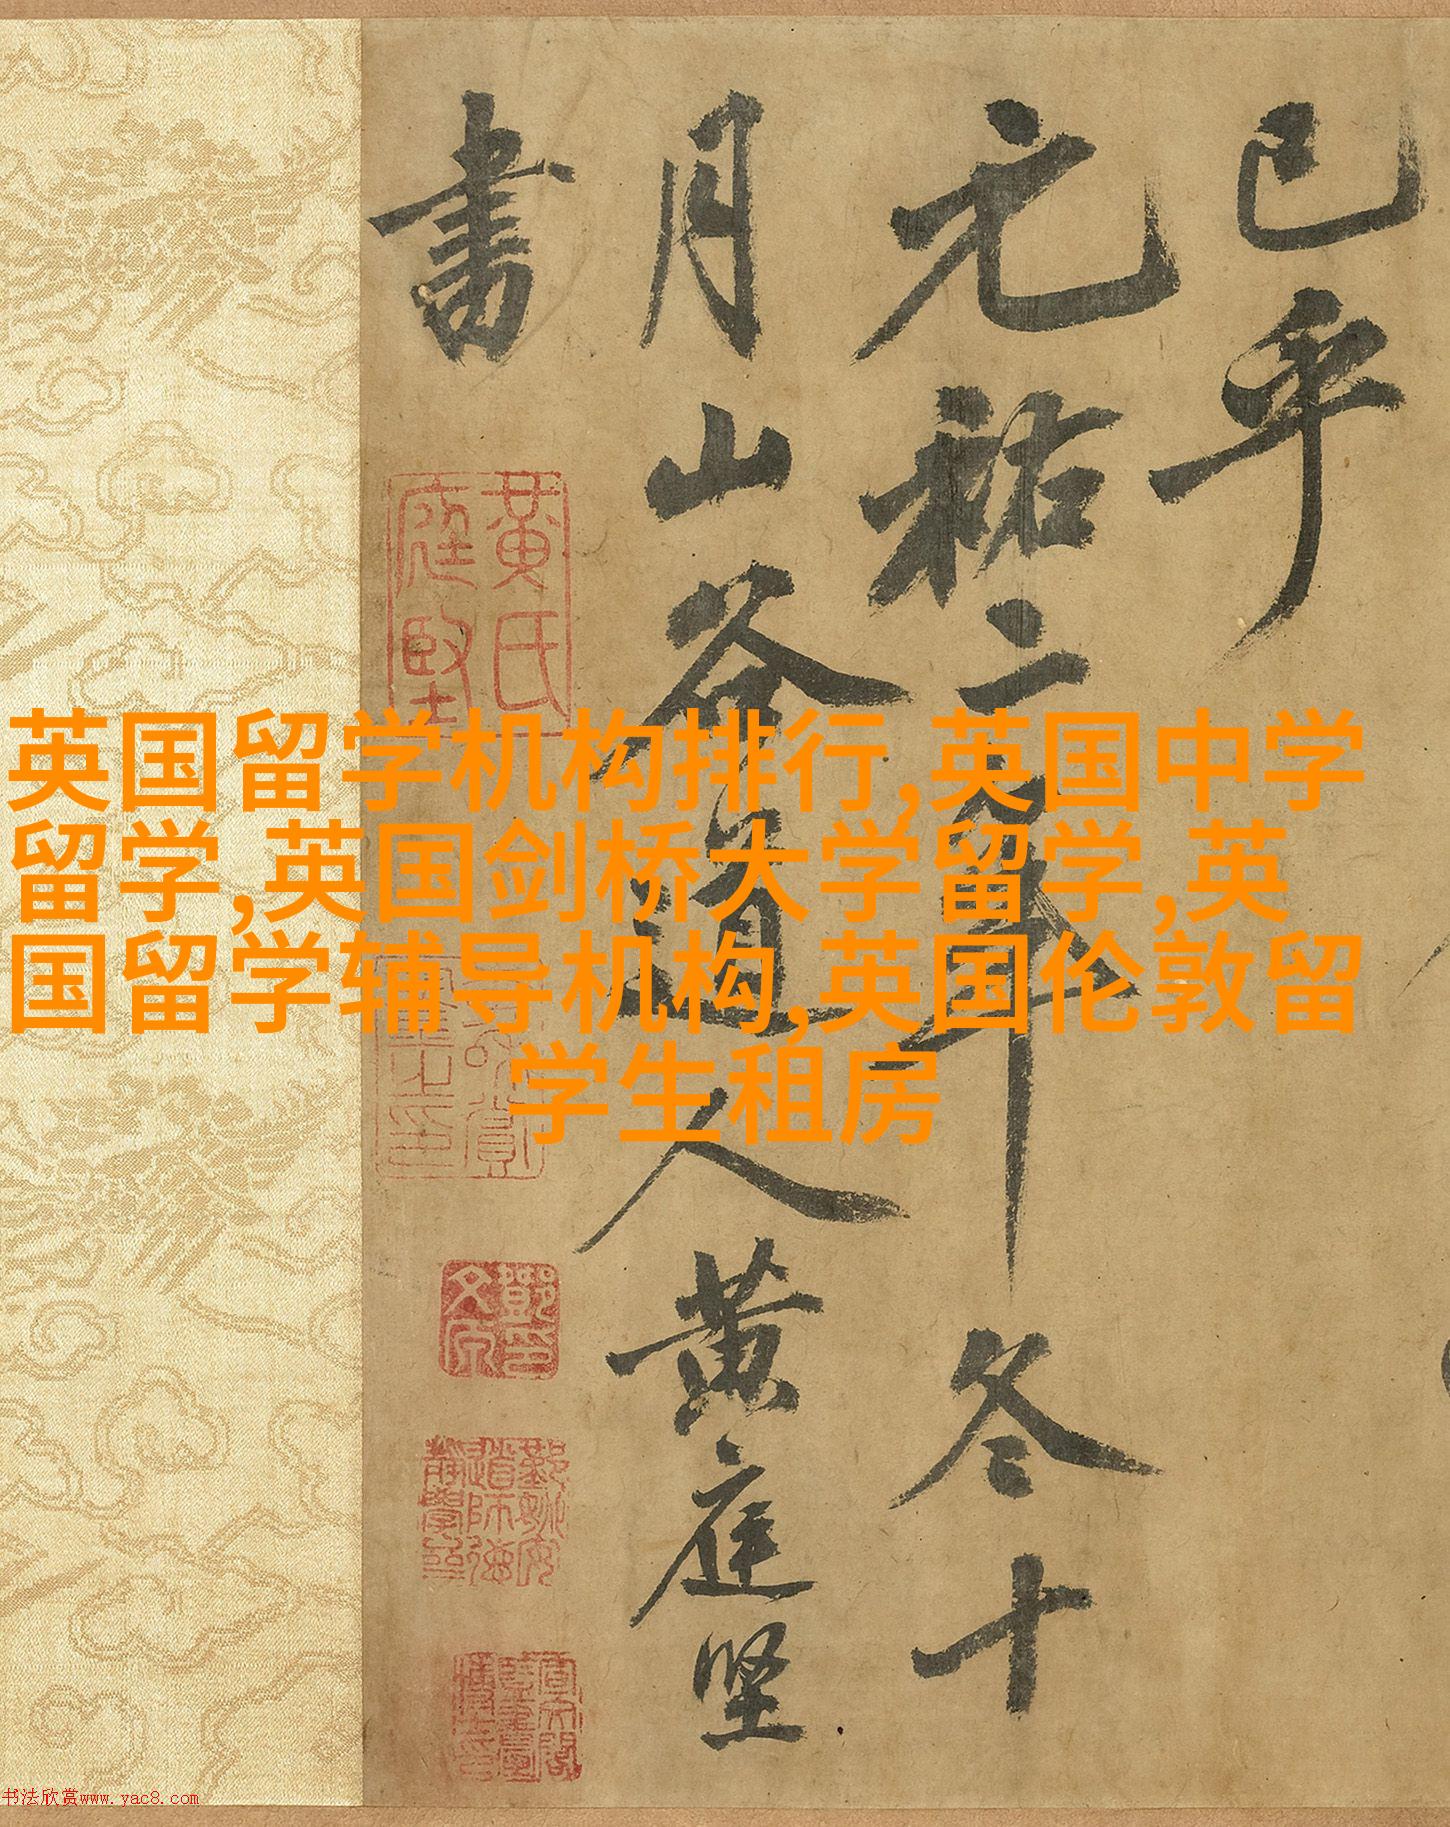 已乎
元祐二年冬十
月山谷道人黄庭堅
書
黄氏
庭堅
英国留学机构排行,英国中学
留学,英国剑桥大学留学,英
国留学辅导机构,英国伦敦留
学生租房
书法欣赏www.yac8.com